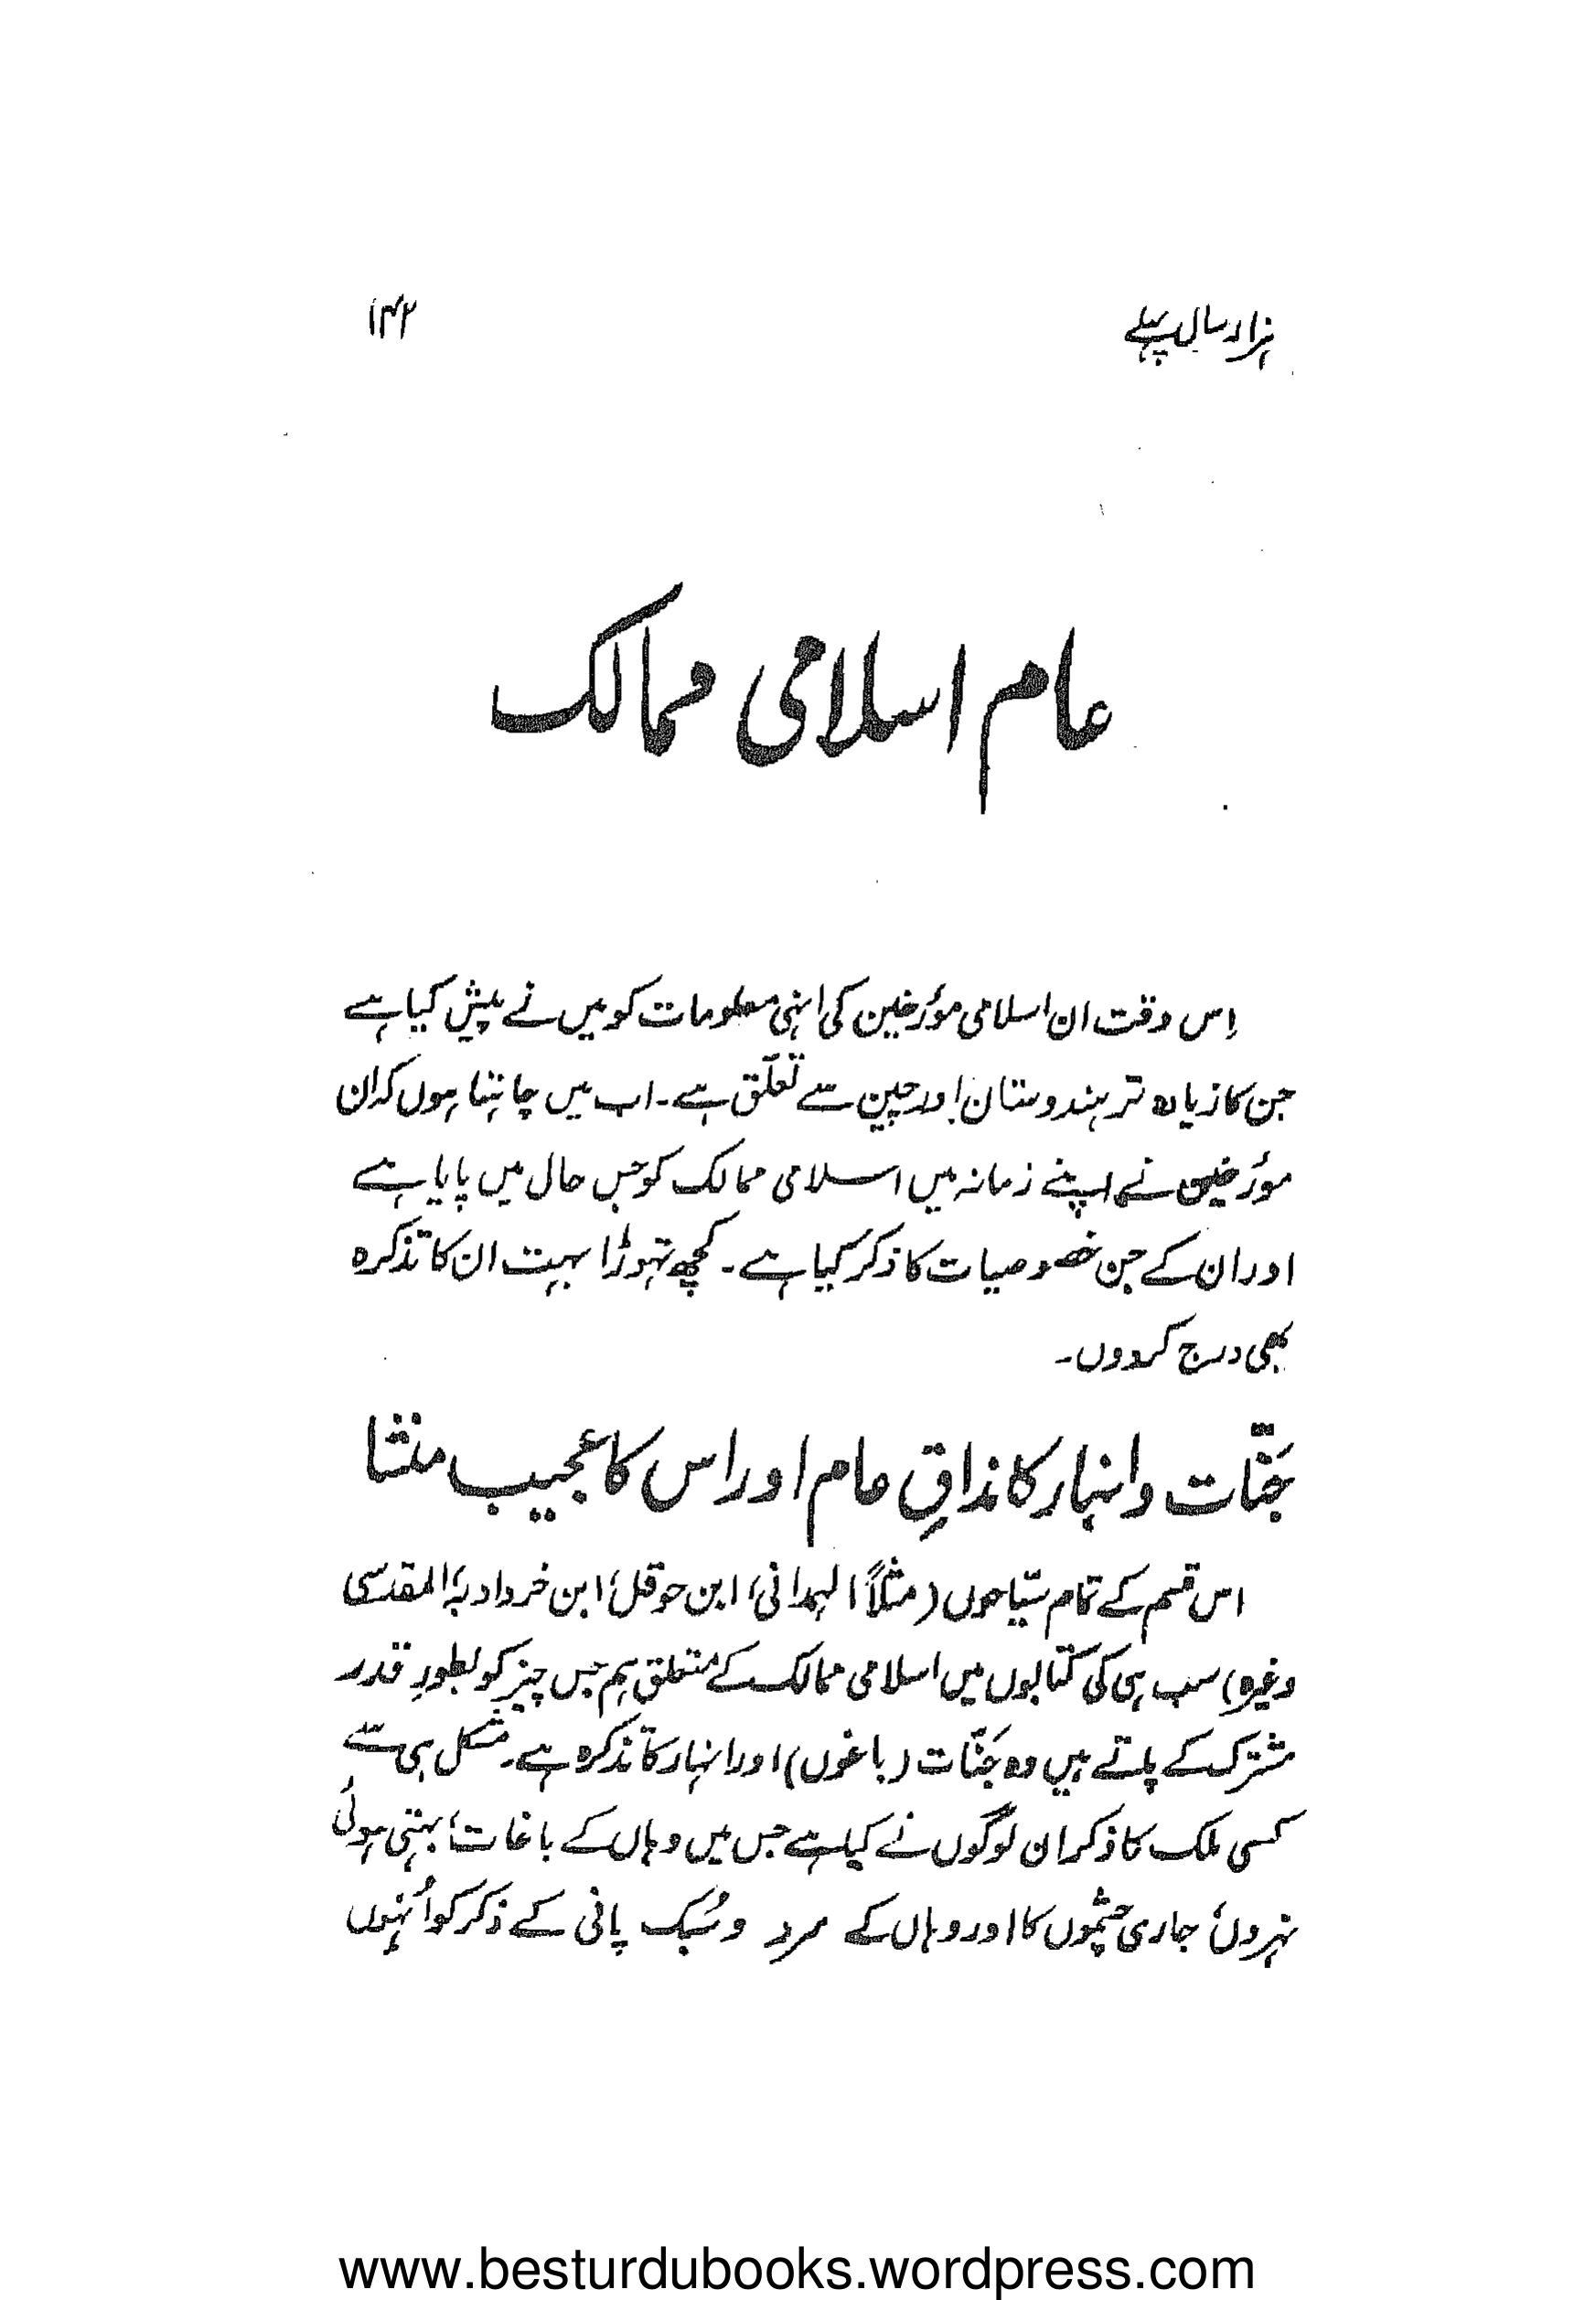 ہزار سال پہلے
۱۴۲
عام اسلامی ممالک
اِس وقت ان اسلامی مؤرخین کی انہی معلومات کو میں نے پیش کیا ہے
جن کا زیادہ تر ہندوستان اور چین سے تعلّق ہے۔ اب میں چاہتا ہوں کہ ان
مؤرخین نے اپنے زمانہ میں اسلامی ممالک کو جس حال میں پایا ہے
اور ان کے جن خصوصیات کا ذکر کیا ہے۔ کچھ تہوڑا بہت ان کا تذکرہ
بھی درج کردوں۔
جَنّات و انہار کا مذاقِ عام اور اس کا عجیب منشا
اس قسم کے تمام سیّاحوں (مثلاً الہمدانی، ابن حوقل، ابن خردادبہ، المقدسی
وغیرہ) سب ہی کی کتابوں میں اسلامی ممالک کے متعلق ہم جس چیز کو بطورِ قدر
مشترک کے پاتے ہیں وہ جَنّات (باغوں) اور انہار کا تذکرہ ہے۔ مشکل ہی سے
کسی ملک کا ذکر ان لوگوں نے کیا ہے جس میں وہاں کے باغات، بہتی ہوئی
نہروں، جاری چشموں کا اور وہاں کے سرد و سُبک پانی کے ذکر کو اُنہوں
www.besturdubooks.wordpress.com